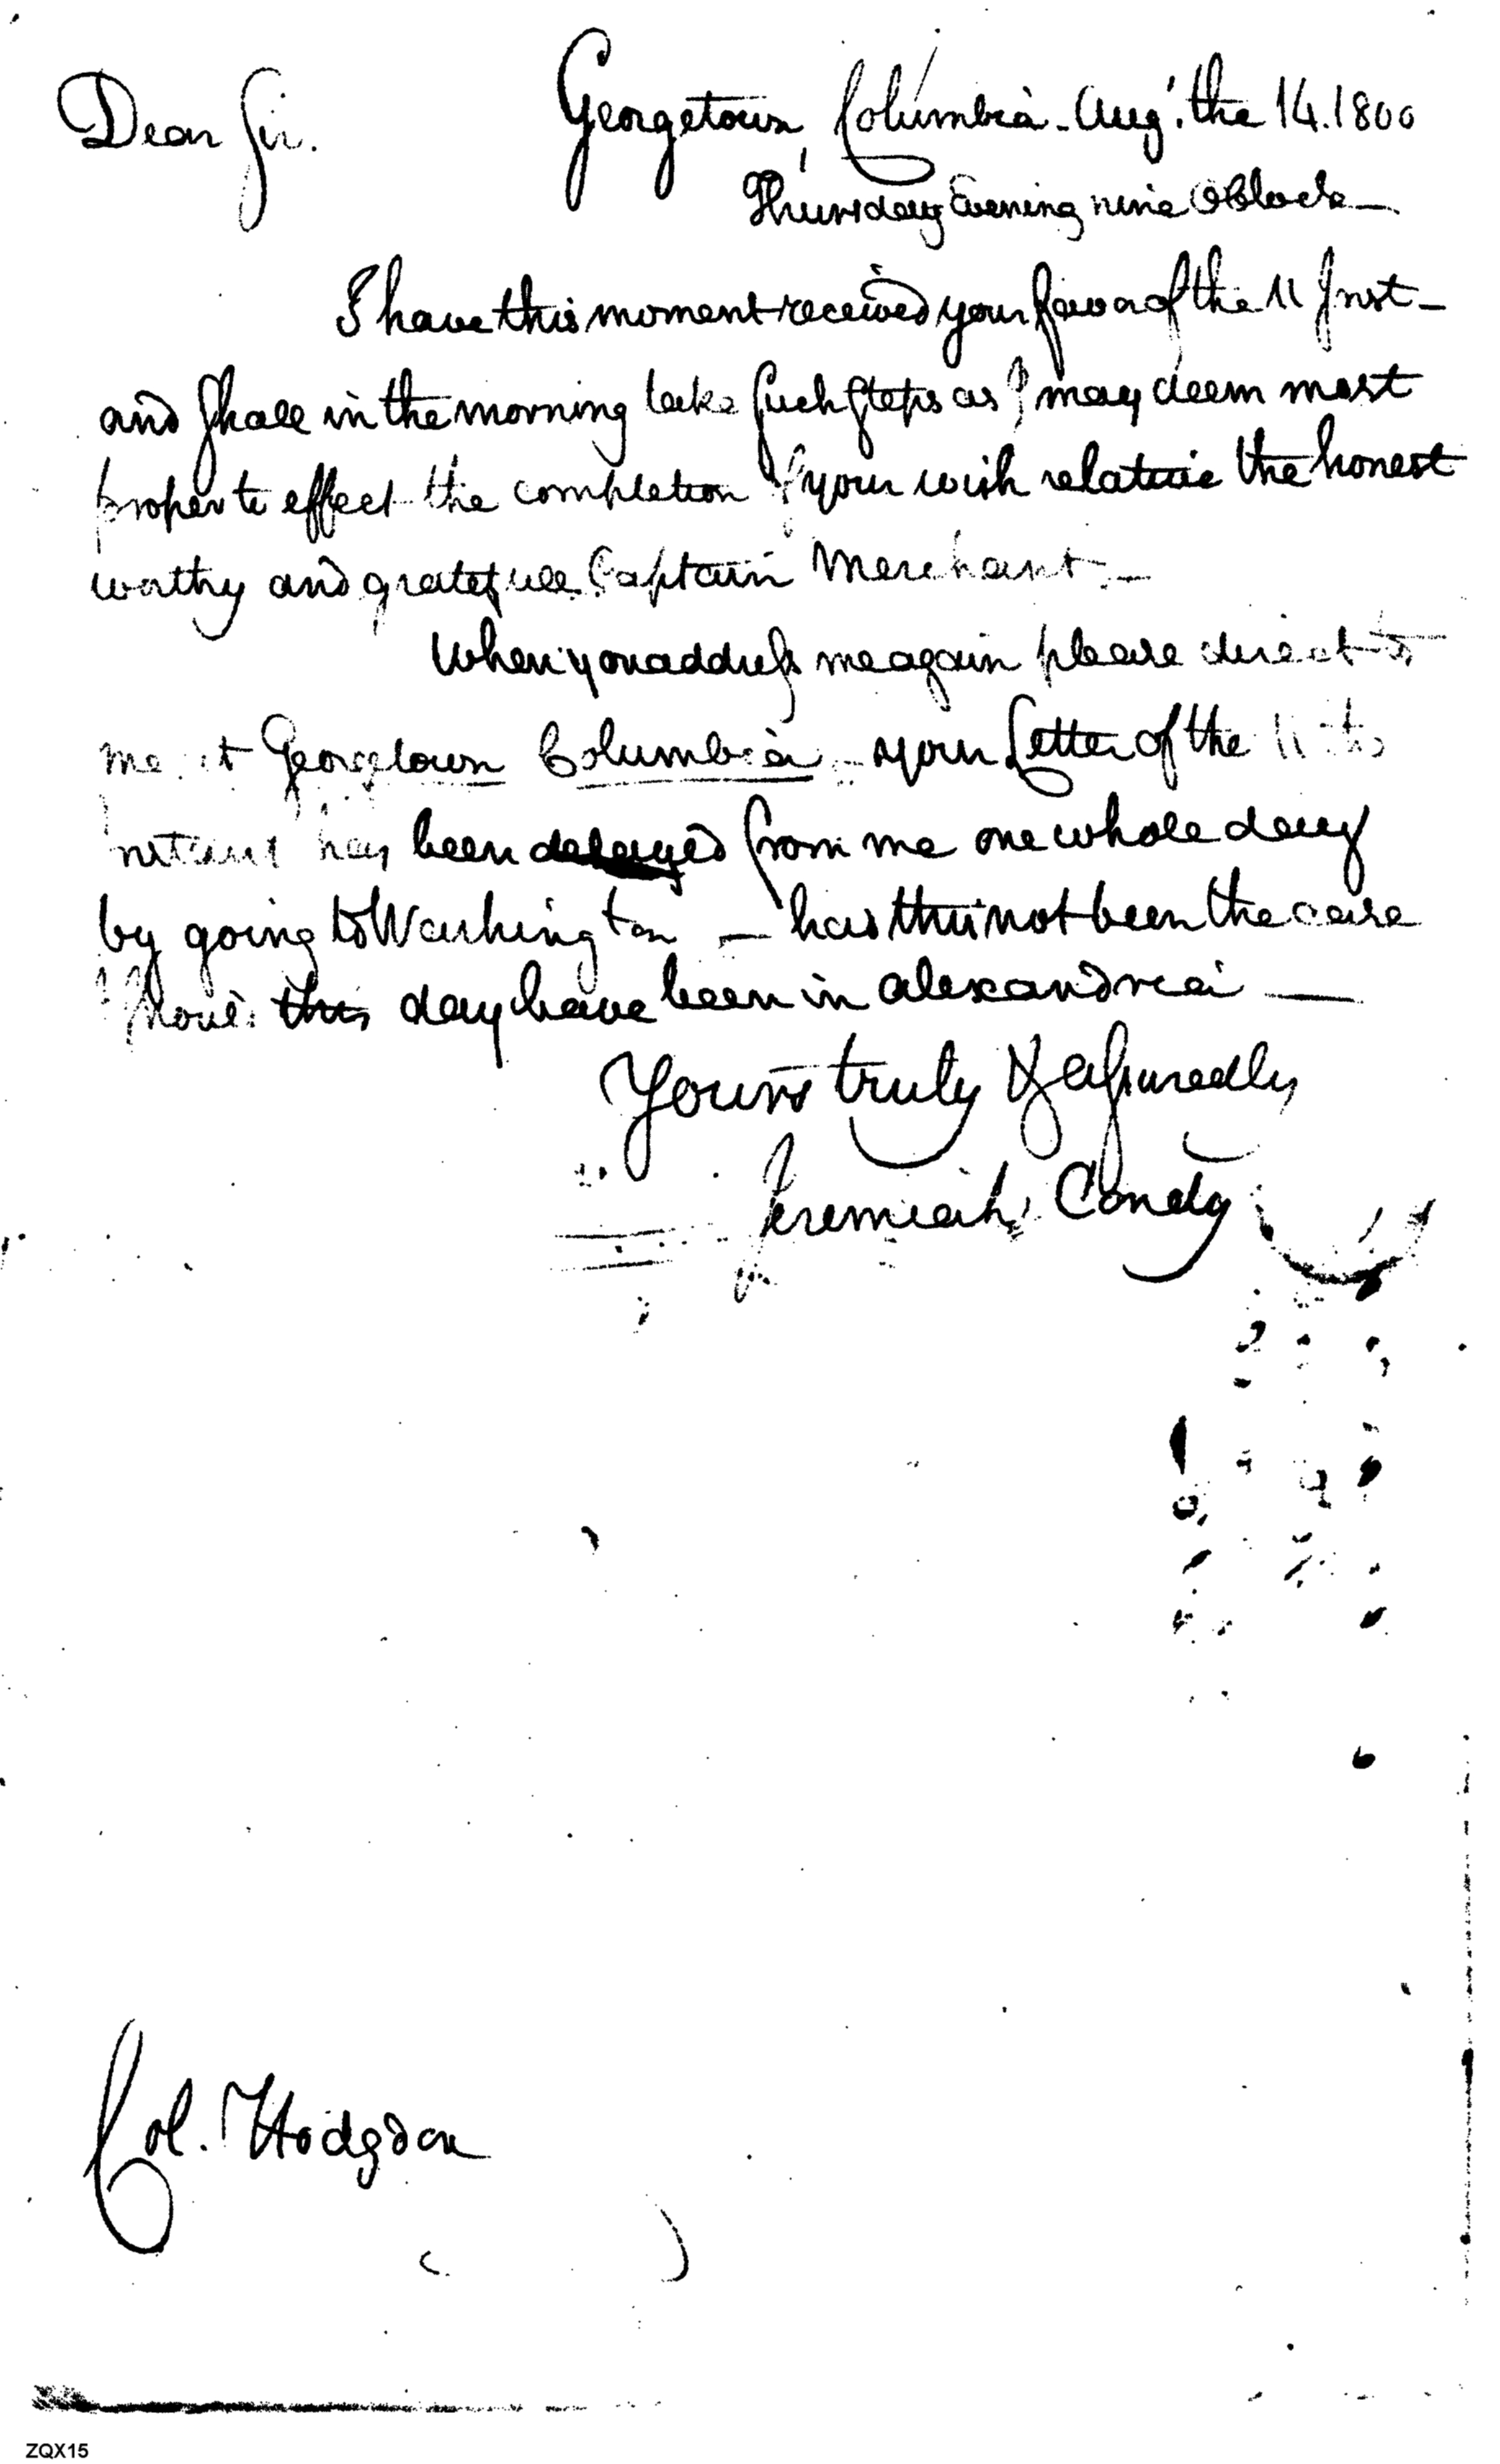 Dear Sir. Georgetown, Columbia - Augt. the 14. 1800
Thursday Evening nine OClock -
I have this moment received your favor of the 11 Inst -
and shall in the morning take such steps as I may deem most
proper to effect the completion of your wish relative the honest
worthy and gratefull Captain Merchant -
When you address me again please direct to
me at Georgetown Columbia - your Letter of the 11
has been delayed from me one whole day
by going to Washington - had this not been the case
this day have been in alexandria -
Yours truly & assuredly
Jeremiah Condy
Col. Hodgdon
ZQX15